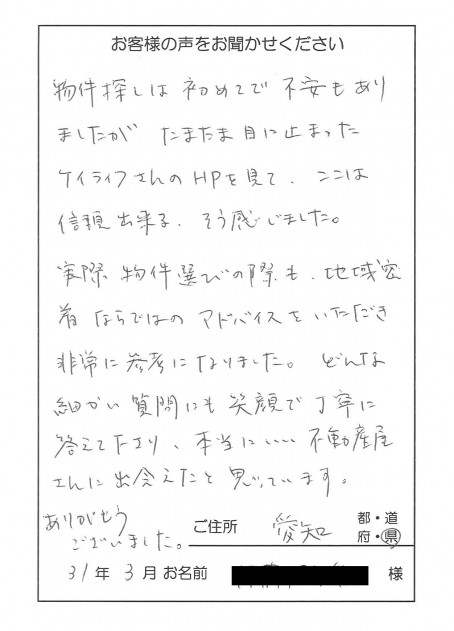 お客様の声をお聞かせください
物件探しは初めてで不安もあり
ましたが たまたま目に止まった
ケイライフさんのHPを見て、ここは
信頼出来る、そう感じました。
実際物件選びの際も、地域密
着ならではのアドバイスをいただき
非常に参考になりました。どんな
細かい質問にも笑顔で丁寧に
答えて下さり、本当にいい不動産屋
さんに出会えたと思っています。
ありがとう
ございました。
ご住所 愛知 都・道
府・県
31年 3月 お名前 様